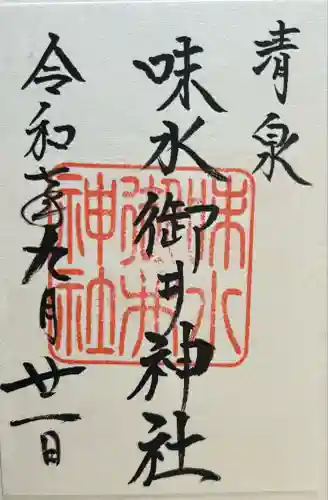 清泉
味水御井神社
令和七年九月廿一日
味水
御井
神社